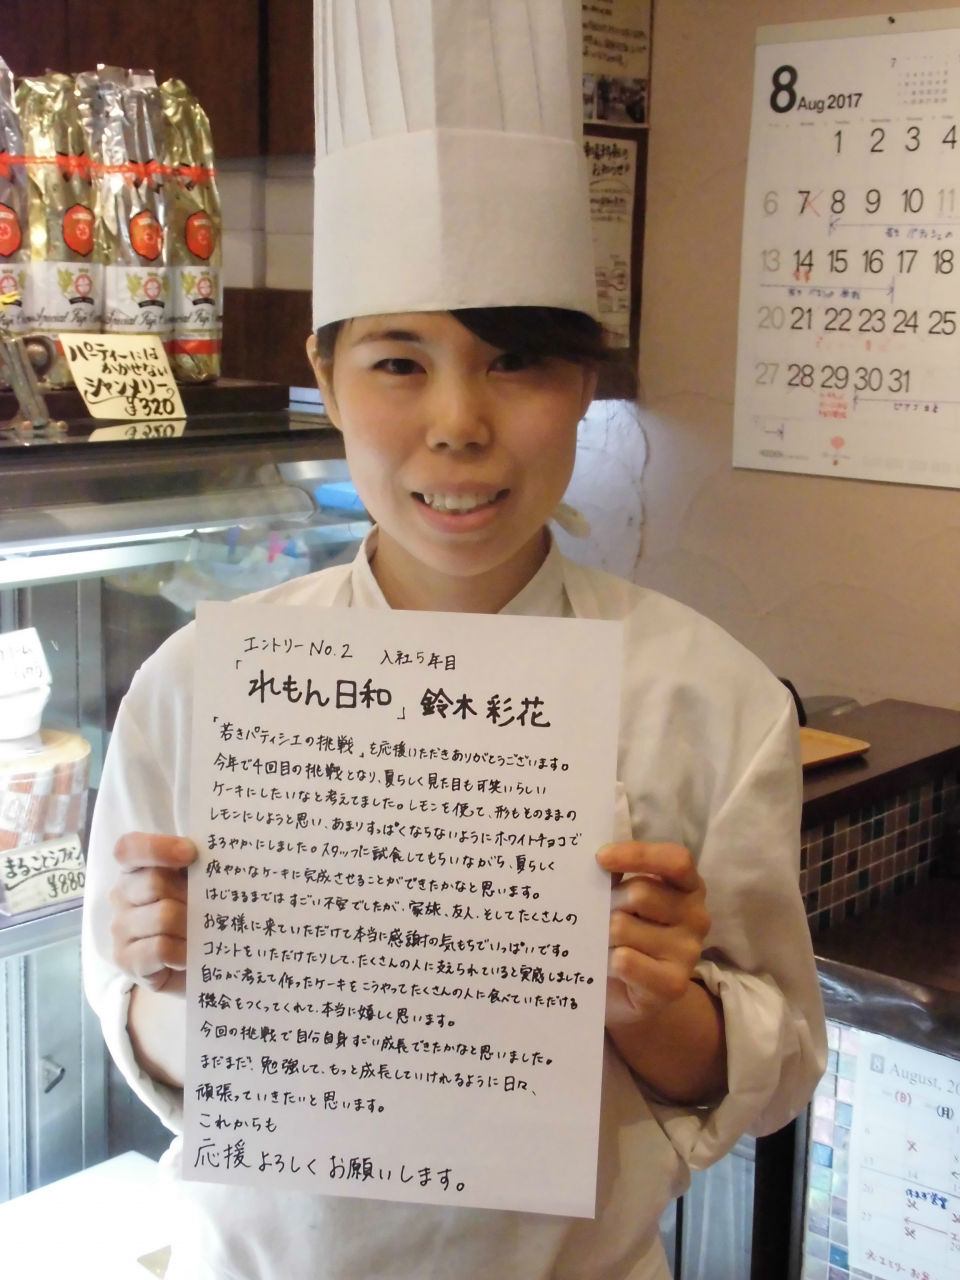 パーティーには
かかせない
シャンメリー。
¥320
8 Aug 2017
1 2 3 4
6 7 8 9 10 11
13 14 15 16 17 18
20 21 22 23 24 25
27 28 29 30 31
まるごとシフォン
¥880
エントリーNo.2 入社5年目
「れもん日和」鈴木 彩花
「若きパティシエの挑戦」を応援いただきありがとうございます。
今年で4回目の挑戦となり、夏らしく見た目も可笑いらしい
ケーキにしたいなと考えてました。レモンを使って、形もそのままの
レモンにしようと思い、あまりすっぱくならないようにホワイトチョコで
まろやかにしました。スタッフに試食してもらいながら、夏らしく
爽やかなケーキに完成させることができたかなと思います。
はじまるまではすごい不安でしたが、家族、友人、そしてたくさんの
お客様に来ていただけて本当に感謝の気もちでいっぱいです。
コメントをいただけたりして、たくさんの人に支えられていると実感しました。
自分が考えて作ったケーキをこうやってたくさんの人に食べていただける
機会をつくってくれて、本当に嬉しく思います。
今回の挑戦で自分自身すごい成長できたかなと思いました。
まだまだ、勉強して、もっと成長していけれるように日々、
頑張っていきたいと思います。
これからも
応援よろしくお願いします。
8 August, 20
(日) (月)